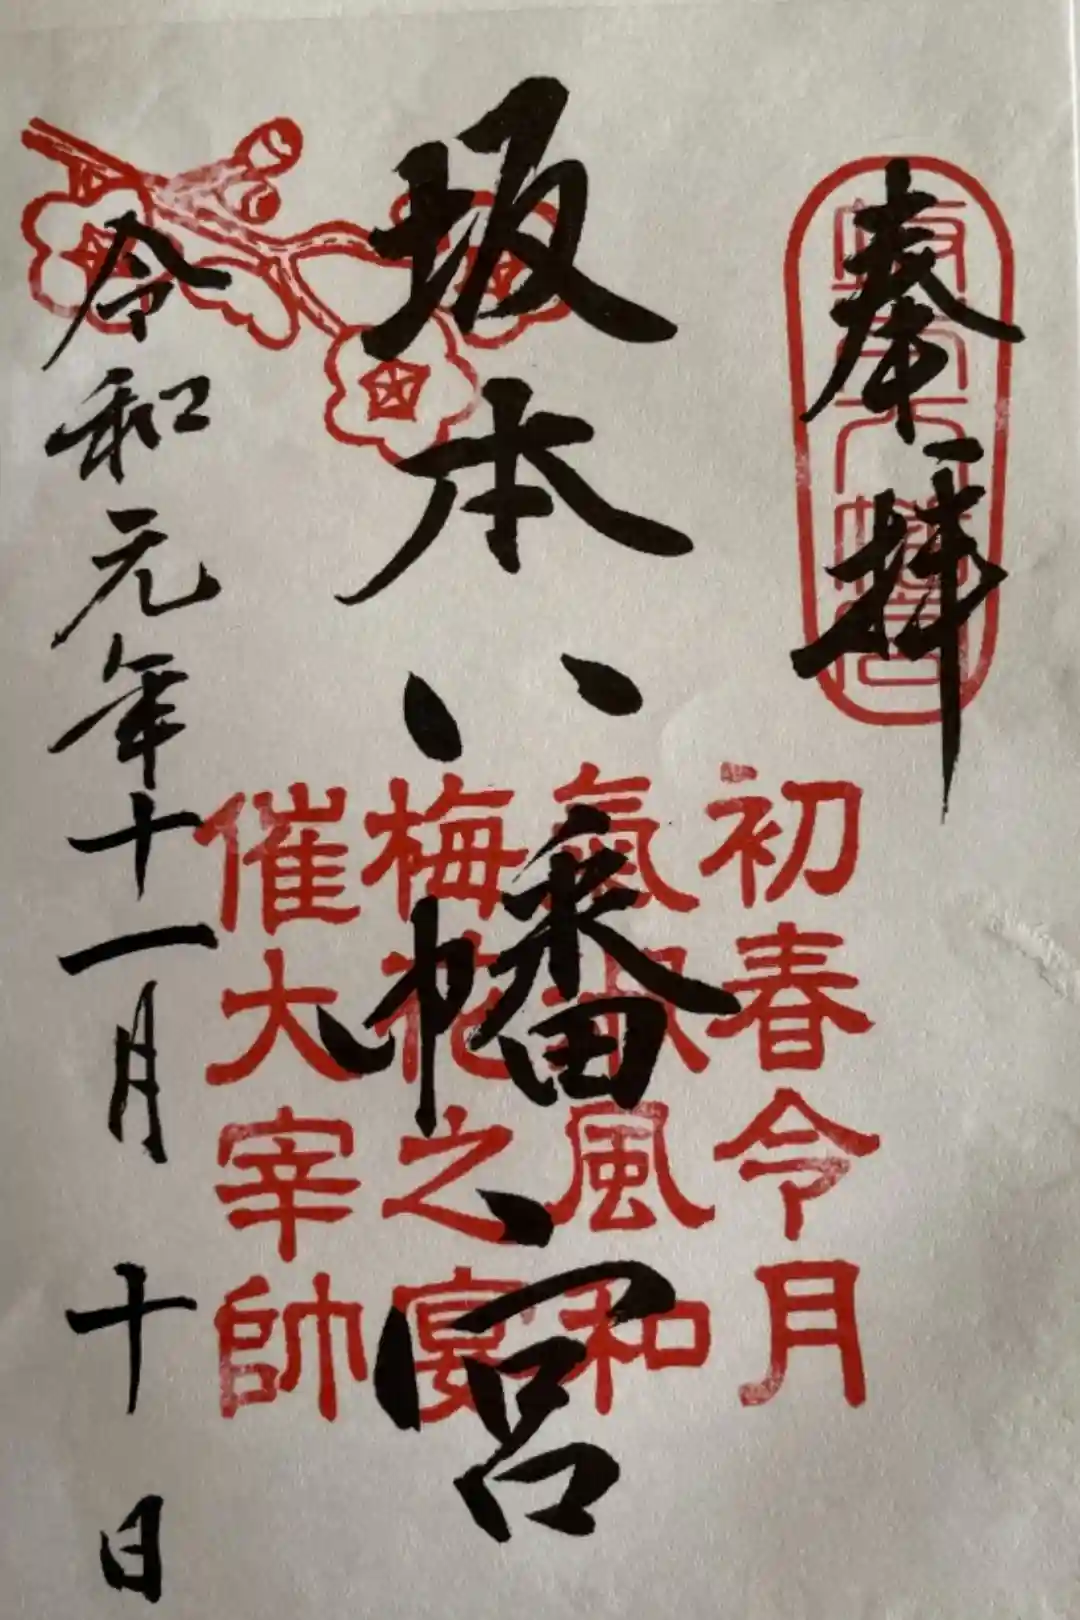 奉拝
坂本八幡宮
初春令月
氣淑風和
梅花之宴
催大宰帥
令和元年十一月十日